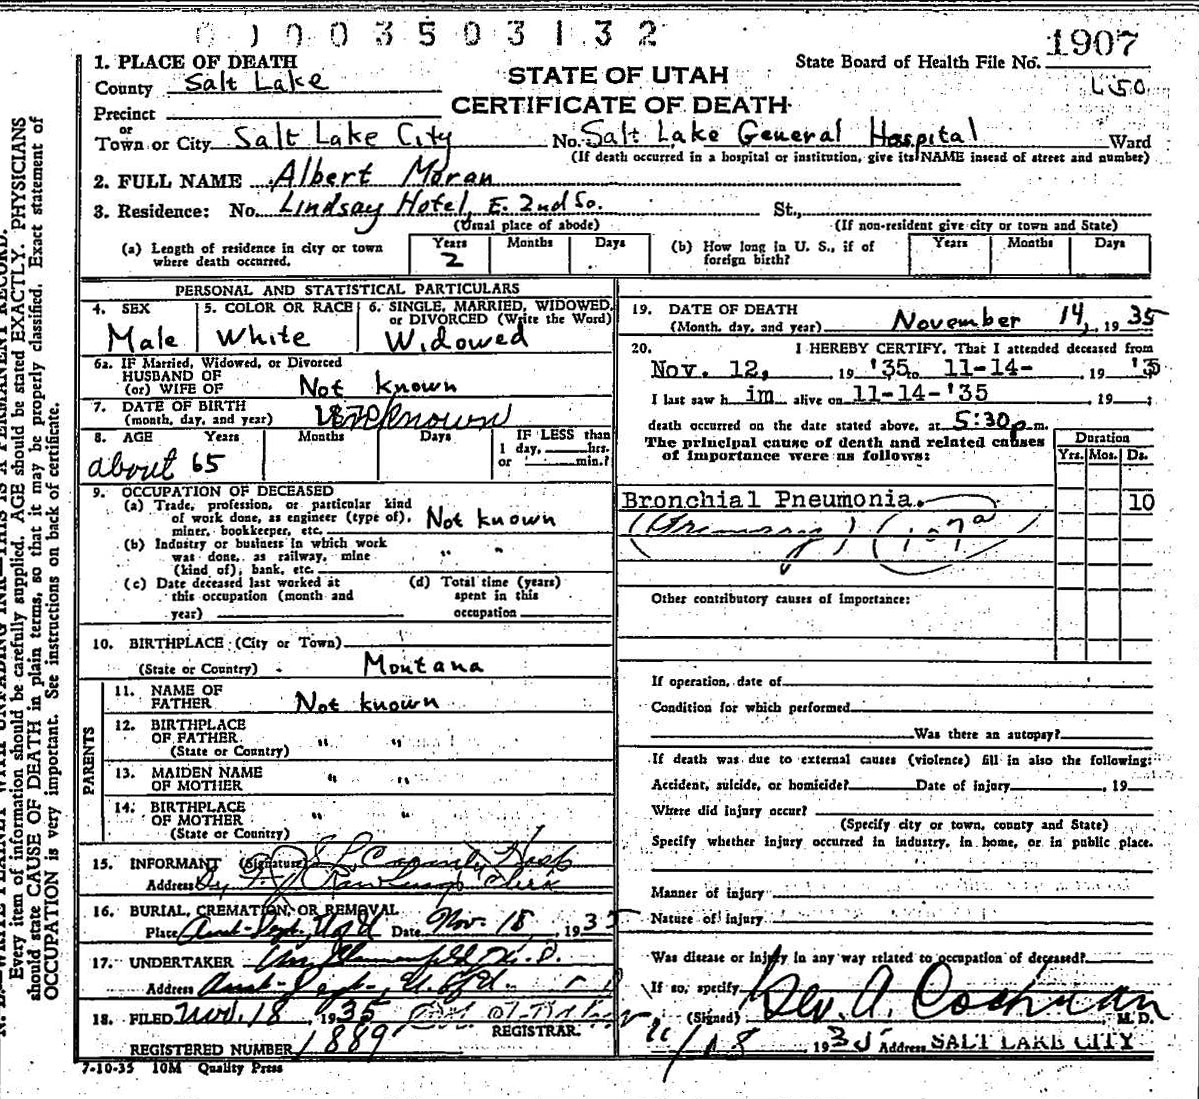 0 1 0 0 3 5 0 3 1 3 2
1. PLACE OF DEATH
State Board of Health File No. 1907
County Salt Lake
STATE OF UTAH
L50
CERTIFICATE OF DEATH
Precinct
or
Town or City Salt Lake City No. Salt Lake General Hospital Ward
(If death occurred in a hospital or institution, give its NAME insead of street and number)
2. FULL NAME Albert Moran
3. Residence: No. Lindsay Hotel, E. 2nd So. St.,
(Usual place of abode) (If non-resident give city or town and State)
(a) Length of residence in city or town where death occurred. Years 2 Months Days
(b) How long in U. S., if of foreign birth? Years Months Days
PERSONAL AND STATISTICAL PARTICULARS
4. SEX Male
5. COLOR OR RACE White
6. SINGLE, MARRIED, WIDOWED, or DIVORCED (Write the Word) Widowed
6a. IF Married, Widowed, or Divorced
HUSBAND OF
(or) WIFE OF Not known
7. DATE OF BIRTH
(month, day, and year) 1870 unknown
8. AGE Years Months Days IF LESS than
1 day, hrs.
or min.?
about 65
9. OCCUPATION OF DECEASED
(a) Trade, profession, or particular kind
of work done, as engineer (type of),
miner, bookkeeper, etc. Not known
(b) Industry or business in which work
was done, as railway, mine
(kind of), bank, etc. " "
(c) Date deceased last worked at
this occupation (month and
year)
(d) Total time (years)
spent in this
occupation
10. BIRTHPLACE (City or Town)
(State or Country) Montana
PARENTS
11. NAME OF
FATHER Not known
12. BIRTHPLACE
OF FATHER
(State or Country) " "
13. MAIDEN NAME
OF MOTHER " "
14. BIRTHPLACE
OF MOTHER
(State or Country) " "
15. INFORMANT (Signature) S L County Hosp
Address By Clerk
16. BURIAL, CREMATION, OR REMOVAL
Place Anat-Dept. U of U Date Nov. 18, 1935
17. UNDERTAKER
Address Anat-Dept-, U. of U.
18. FILED Nov. 18, 1935
REGISTRAR.
REGISTERED NUMBER 1889
7-10-35 10M Quality Press
19. DATE OF DEATH
(Month, day, and year) November 14, 1935
20. I HEREBY CERTIFY, That I attended deceased from
Nov. 12, 19 '35 to 11-14- 19 '35
I last saw h im alive on 11-14-'35, 19 ;
death occurred on the date stated above, at 5:30 p m.
The principal cause of death and related causes
of importance were as follows:
Duration
Yrs. Mos. Ds.
Bronchial Pneumonia. 10
(Primary) (107a)
Other contributory causes of importance:
If operation, date of
Condition for which performed
Was there an autopsy?
If death was due to external causes (violence) fill in also the following:
Accident, suicide, or homicide? Date of injury 19
Where did injury occur?
(Specify city or town, county and State)
Specify whether injury occurred in industry, in home, or in public place.
Manner of injury
Nature of injury
Was disease or injury in any way related to occupation of deceased?
If so, specify
(Signed) Geo. A. Cochran, M. D.
11/18, 1935 Address SALT LAKE CITY
Every item of information should be carefully supplied. AGE should be stated EXACTLY. PHYSICIANS
should state CAUSE OF DEATH in plain terms, so that it may be properly classified. Exact statement of
OCCUPATION is very important. See instructions on back of certificate.